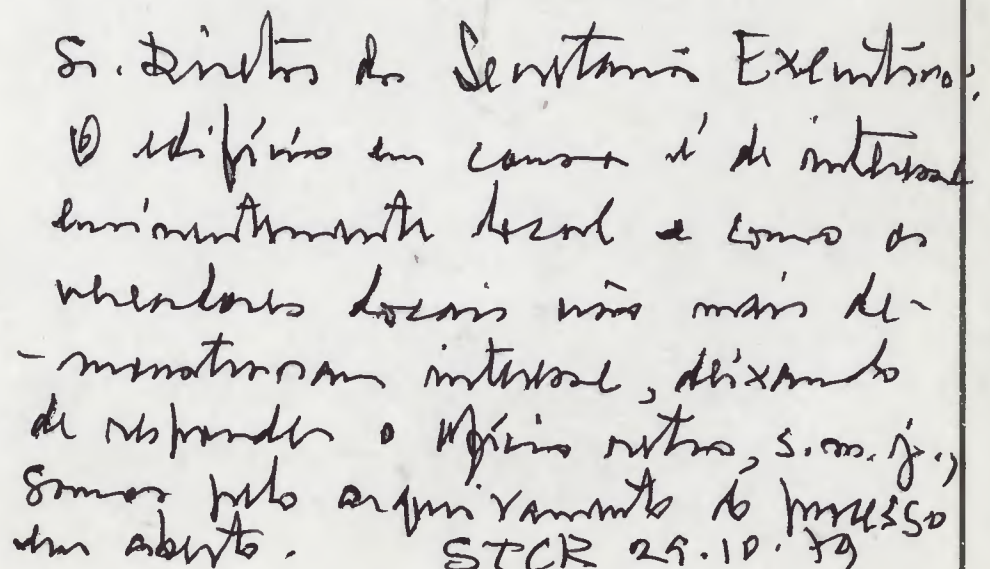 Sr. Diretor da Secretaria Executiva:
O edifício em causa é de interesse
eminentemente local e como os
vereadores locais não mais de-
-monstraram interesse, deixando
de responder o ofício retro, s.m.j.,
somos pelo arquivamento do processo
em aberto. STCR 29.10.79